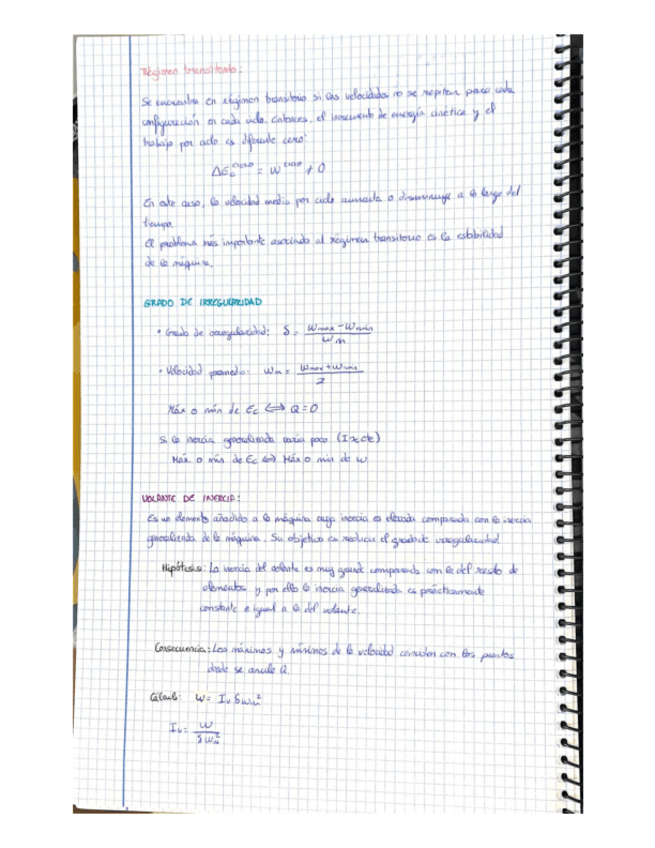 Régimen transitorio:
Se encuentra en régimen transitorio si las velocidades no se repiten para cada
configuración en cada ciclo. Entonces, el incremento de energía cinética y el
trabajo por ciclo es diferente cero:
ΔEc^ciclo = W^ciclo ≠ 0
En este caso, la velocidad media por ciclo aumenta o disminuye a lo largo del
tiempo.
El problema más importante asociado al régimen transitorio es la estabilidad
de la máquina.
GRADO DE IRREGULARIDAD
• Grado de irregularidad: δ = (ωmax - ωmin) / ωm
• Velocidad promedio: ωm = (ωmax + ωmin) / 2
Máx o mín de Ec ⟺ Q=0
Si la inercia generalizada varía poco (I≈cte)
Máx. o mín de Ec ⟺ Máx o mín de ω
VOLANTE DE INERCIA:
Es un elemento añadido a la máquina cuya inercia es elevada comparada con la inercia
generalizada de la máquina. Su objetivo es reducir el grado de irregularidad
Hipótesis: La inercia del volante es muy grande comparada con la del resto de
elementos y por ello la inercia generalizada es prácticamente
constante e igual a la del volante.
Consecuencia: Los máximos y mínimos de la velocidad coinciden con los puntos
donde se anula Q.
Cálculo: W = Iv δ ωm²
Iv = W / (δ ωm²)